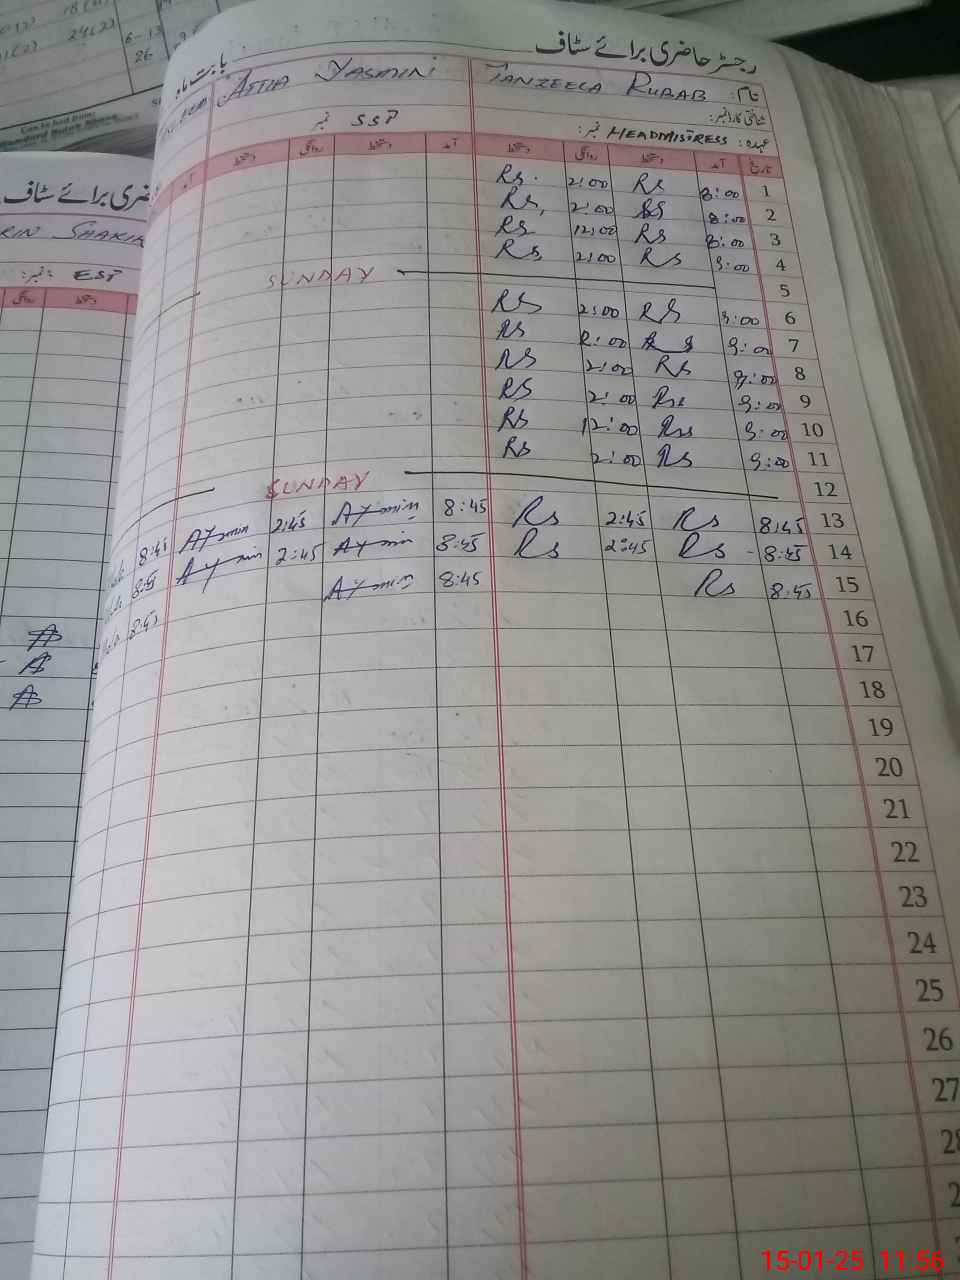 رجسٹر حاضری برائے سٹاف
بابت ماہ
نام: TANZEELA RUBAB
ATTIA YASMIN
شناختی کارڈ نمبر:
عہدہ: نمبر: HEADMISTRESS
نمبر SST
تاریخ آمد دستخط روانگی دستخط آمد دستخط روانگی دستخط آمد
1 8:00 Rs 2:00 Rs.
2 8:00 Rs 2:00 Rs,
3 8:00 Rs 12:00 Rs
4 9:00 Rs 2:00 Rs,
5 SUNDAY
6 9:00 Rs 2:00 Rs
7 9:00 Rs 2:00 Rs
8 9:00 Rs 2:00 Rs
9 9:00 Rs 2:00 Rs
10 9:00 Rs 12:00 Rs
11 9:00 Rs 2:00 Rs
12 SUNDAY
13 8:45 Rs 2:45 Rs 8:45 AYmin 2:45 AYmin 8:45
14 8:45 Rs 2:45 Rs 8:45 AYmin 2:45 AYmin 8:45
15 8:45 Rs 8:45 AYmin 8:45
16
17
18
19
20
21
22
23
24
25
26
27
حاضری برائے سٹاف
SHAKIR
نمبر: EST
روانگی دستخط
18
24(2)
6-13
26
Standard Book House
15-01-25 11:56